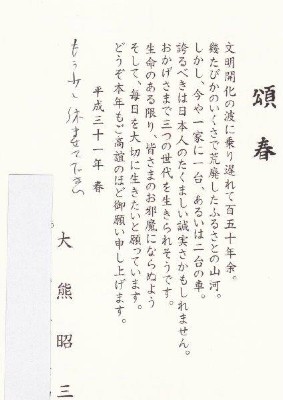 頌春
文明開化の波に乗り遅れて百五十年余。
幾たびかのいくさで荒廃したふるさとの山河。
しかし、今や一家に一台、あるいは二台の車。
誇るべきは日本人のたくましい誠実さかもしれません。
おかげさまで三つの世代を生きられそうです。
生命のある限り、皆さまのお邪魔にならぬよう
そして、毎日を大切に生きたいと願っています。
どうぞ本年もご高誼のほど御願い申し上げます。
平成三十一年 春
もう少し休ませて下さい
大熊昭三